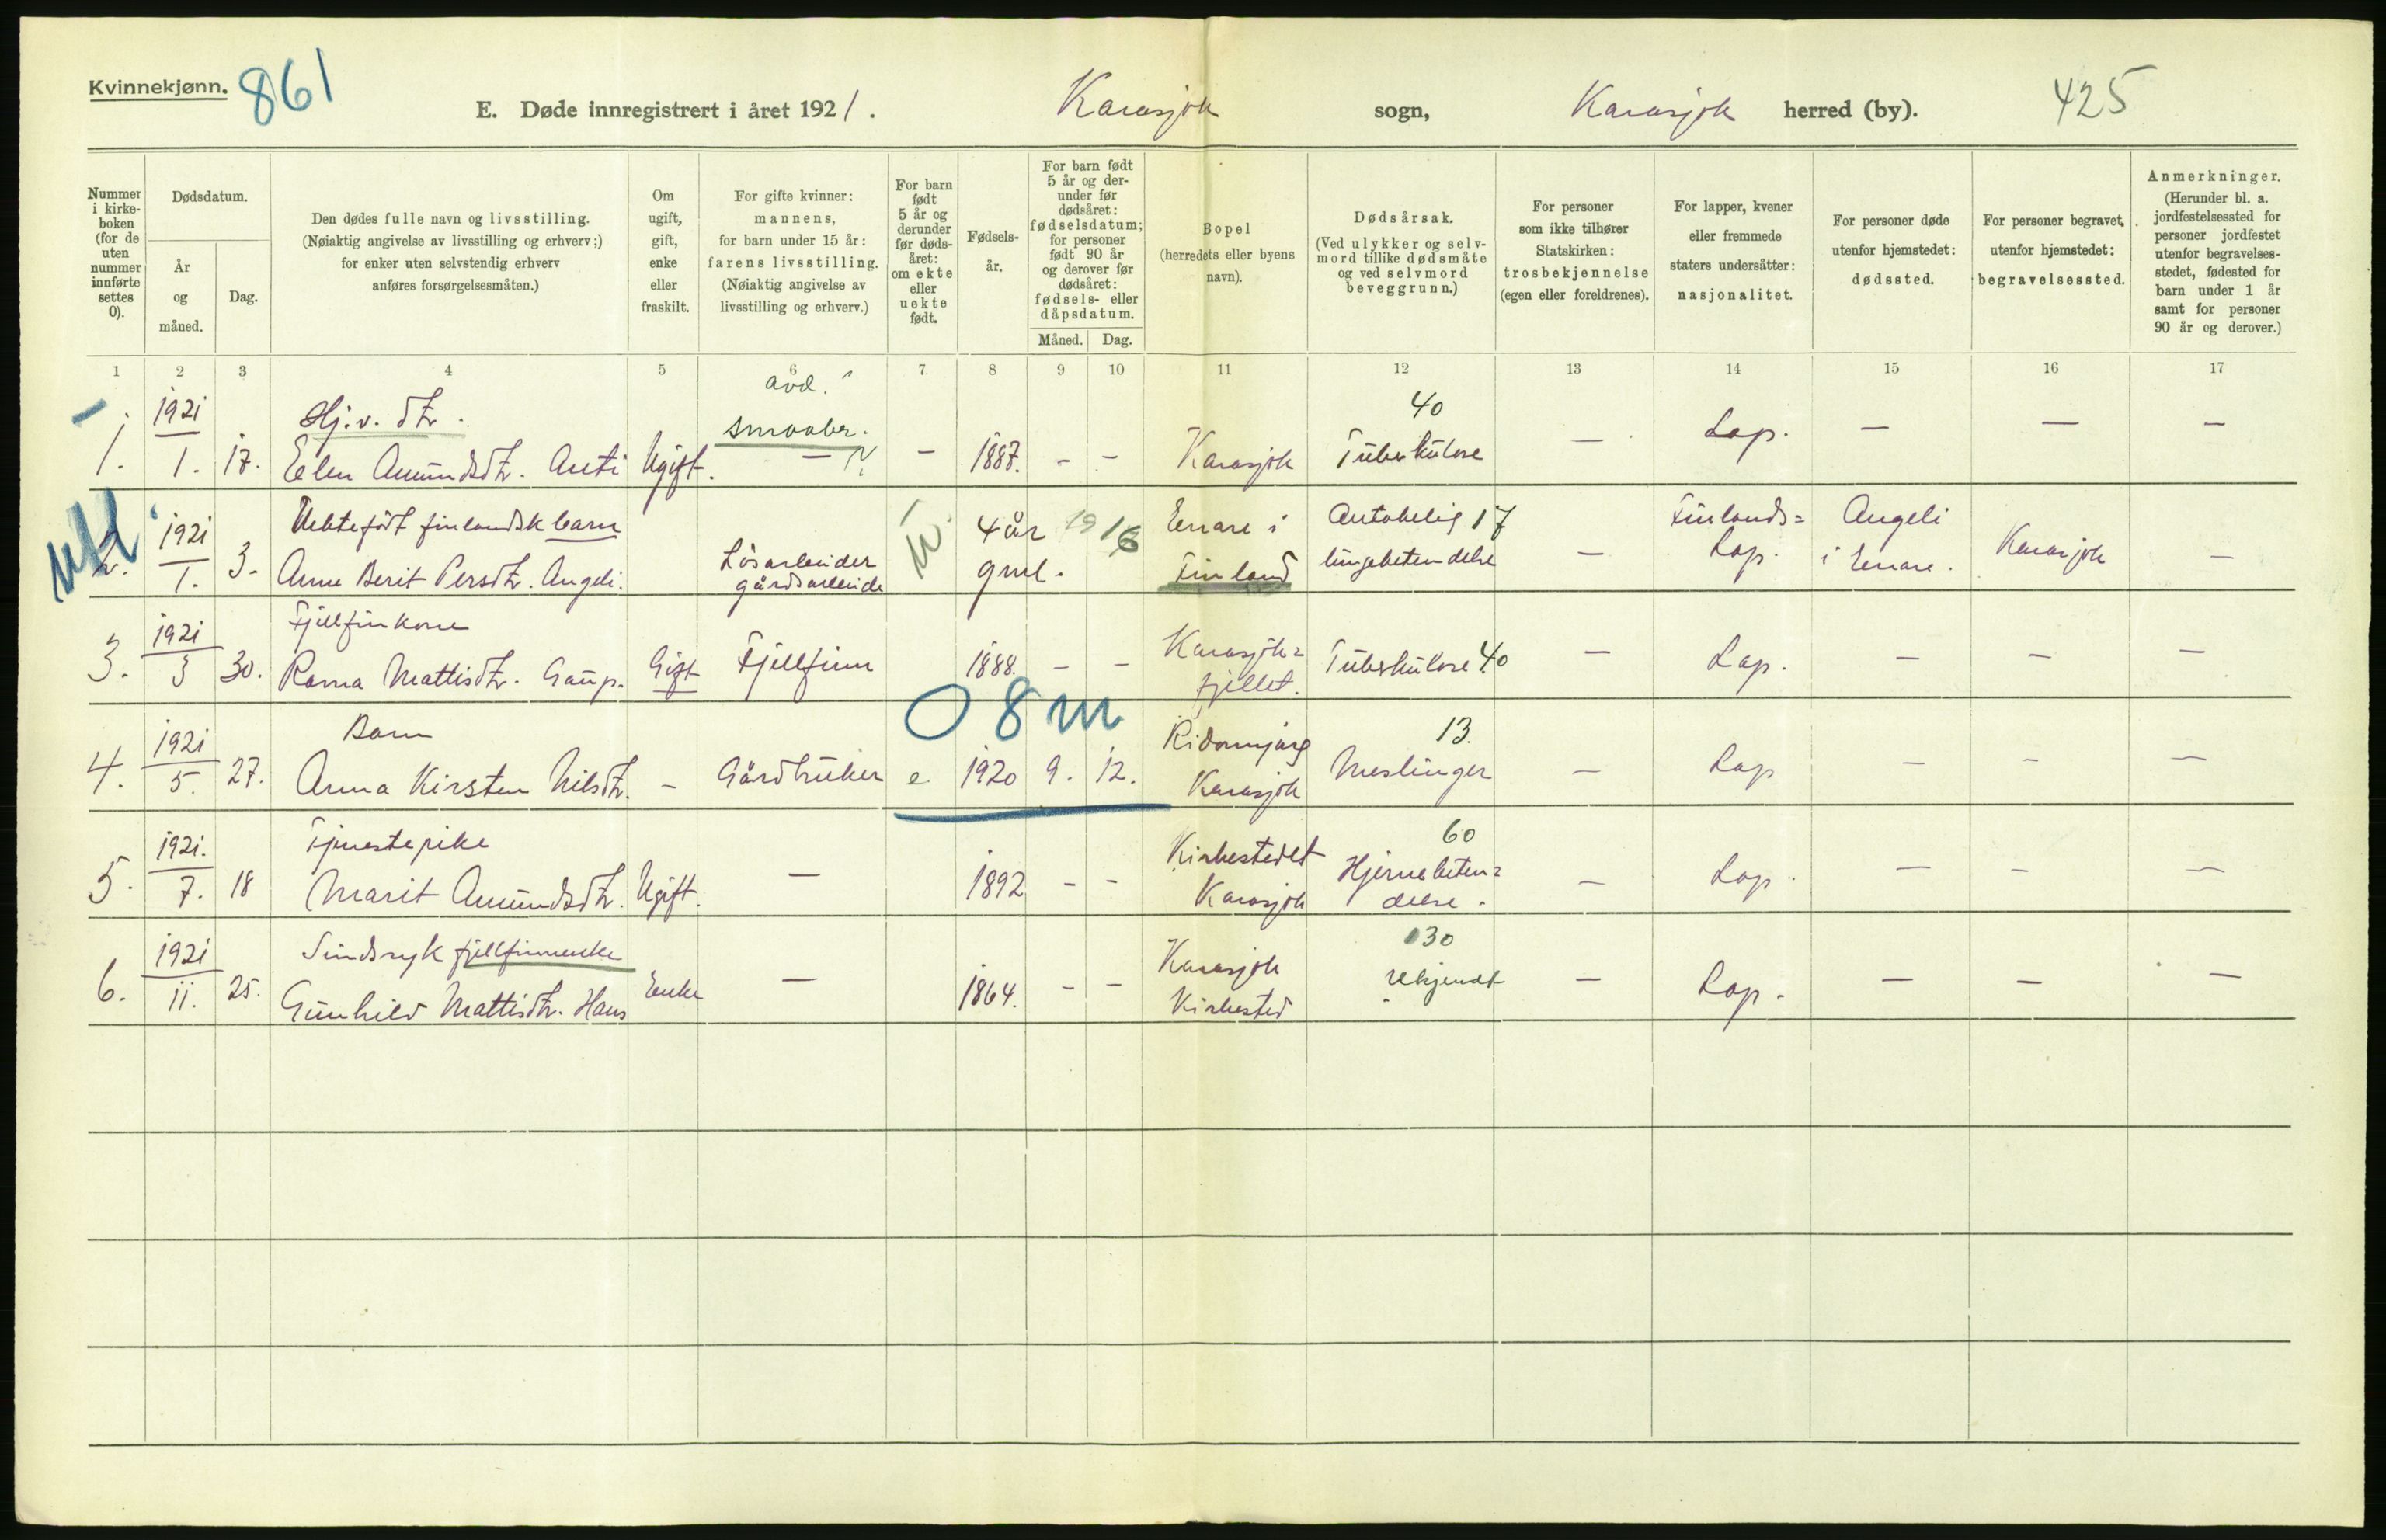 Kvinnekjønn.
861
E. Døde innregistrert i året 1921.
Karasjok sogn,
Karasjok herred (by).
425
Nummer i kirke- boken (for de uten nummer innførte settes 0).
Dødsdatum.
År og måned.
Dag.
Den dødes fulle navn og livsstilling.
(Nøiaktig angivelse av livsstilling og erhverv;)
for enker uten selvstendig erhverv
anføres forsørgelsesmåten.)
Om ugift, gift, enke eller fraskilt.
For gifte kvinner:
mannens,
for barn under 15 år:
farens livsstilling.
(Nøiaktig angivelse av
livsstilling og erhverv.)
For barn født 5 år og derunder før døds- året: om ekte eller uekte født.
Fødsels- år.
For barn født 5 år og der- under før dødsåret: fødselsdatum; for personer født 90 år og derover før dødsåret: fødsels- eller dåpsdatum.
Måned.
Dag.
Bopel
(herredets eller byens
navn).
Dødsårsak.
(Ved ulykker og selv-
mord tillike dødsmåte
og ved selvmord
beveggrunn.)
For personer
som ikke tilhører
Statskirken:
trosbekjennelse
(egen eller foreldrenes).
For lapper, kvener
eller fremmede
staters undersåtter:
nasjonalitet.
For personer døde
utenfor hjemstedet:
dødssted.
For personer begravet
utenfor hjemstedet:
begravelsessted.
Anmerkninger.
(Herunder bl. a.
jordfestelsessted for
personer jordfestet
utenfor begravelses-
stedet, fødested for
barn under 1 år
samt for personer
90 år og derover.)
1 2 3 4 5 6 7 8 9 10 11 12 13 14 15 16 17
avd.
1921 Hj.v. dtr. smaabr. 40
1. 1. 17. Elen Amundsdtr. Anti Ugift. - - 1887. - - Karasjok Tuberkulose - Lap. - - -
1921 Uektefødt finlandsk barn 4 år 1916 Enare i Antakelig 17 Finlands= Angeli
2. 1. 3. Anne Berit Persdtr. Angeli. Løsarbeider gårdsarbeide u. gml. Finland lungebetendelse - Lap. i Enare. Karasjok -
1921 Fjellfinkone Karasjok=
3. 3 30. Ravna Mattisdtr. Gaup. Gift Fjellfinn 1888. - - fjellet. Tuberkulose 40 - Lap. - - -
0 8 m
1921 Barn Ridonnjarg 13.
4. 5. 27. Anna Kirsten Nilsdtr. - Gårdbruker e. 1920 9. 12. Karasjok Meslinger - Lap - - -
1921. Tjenestepike Kirkestedet 60 Hjernebeten=
5. 7. 18 Marit Amundsdtr. Ugift. - 1892 - - Karasjok delse. - Lap. - - -
1921 Sindssyk fjellfinnenke Karasjok 130
6. 11. 25. Gunhild Mattisdtr. Hans Enke - 1864. - - Kirkested ukjendt - Lap. - - -